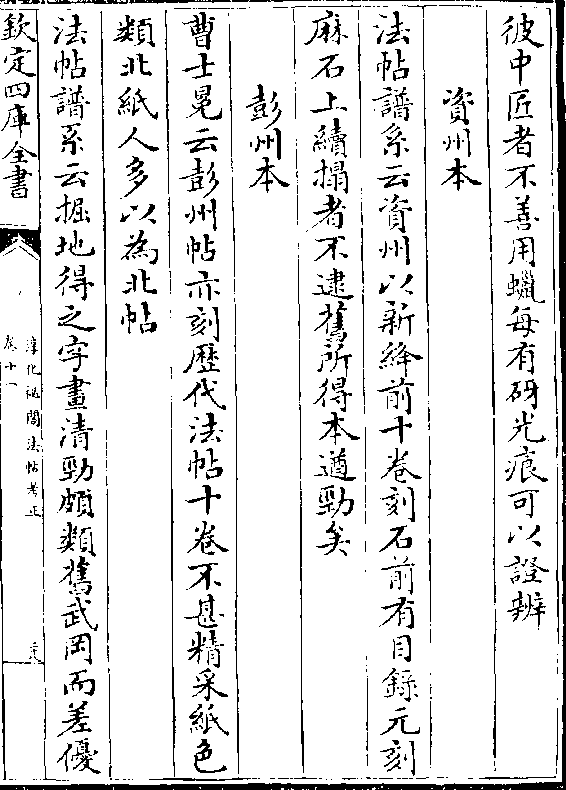 彼中匠者不善用蠟每有砑光痕可以證辨
資州本
法帖譜系云資州以新絳前十卷刻石前有目錄元刻
麻石上續搨者不逮舊所得本遒勁矣
彭州本
曹士冕云彭州帖亦刻歴代法帖十卷不甚精采紙色
類北紙人多以為北帖
法帖譜系云掘地得之字畫清勁頗類舊武岡而差優
欽定四庫全書
淳化祕閣法帖考正
卷十一